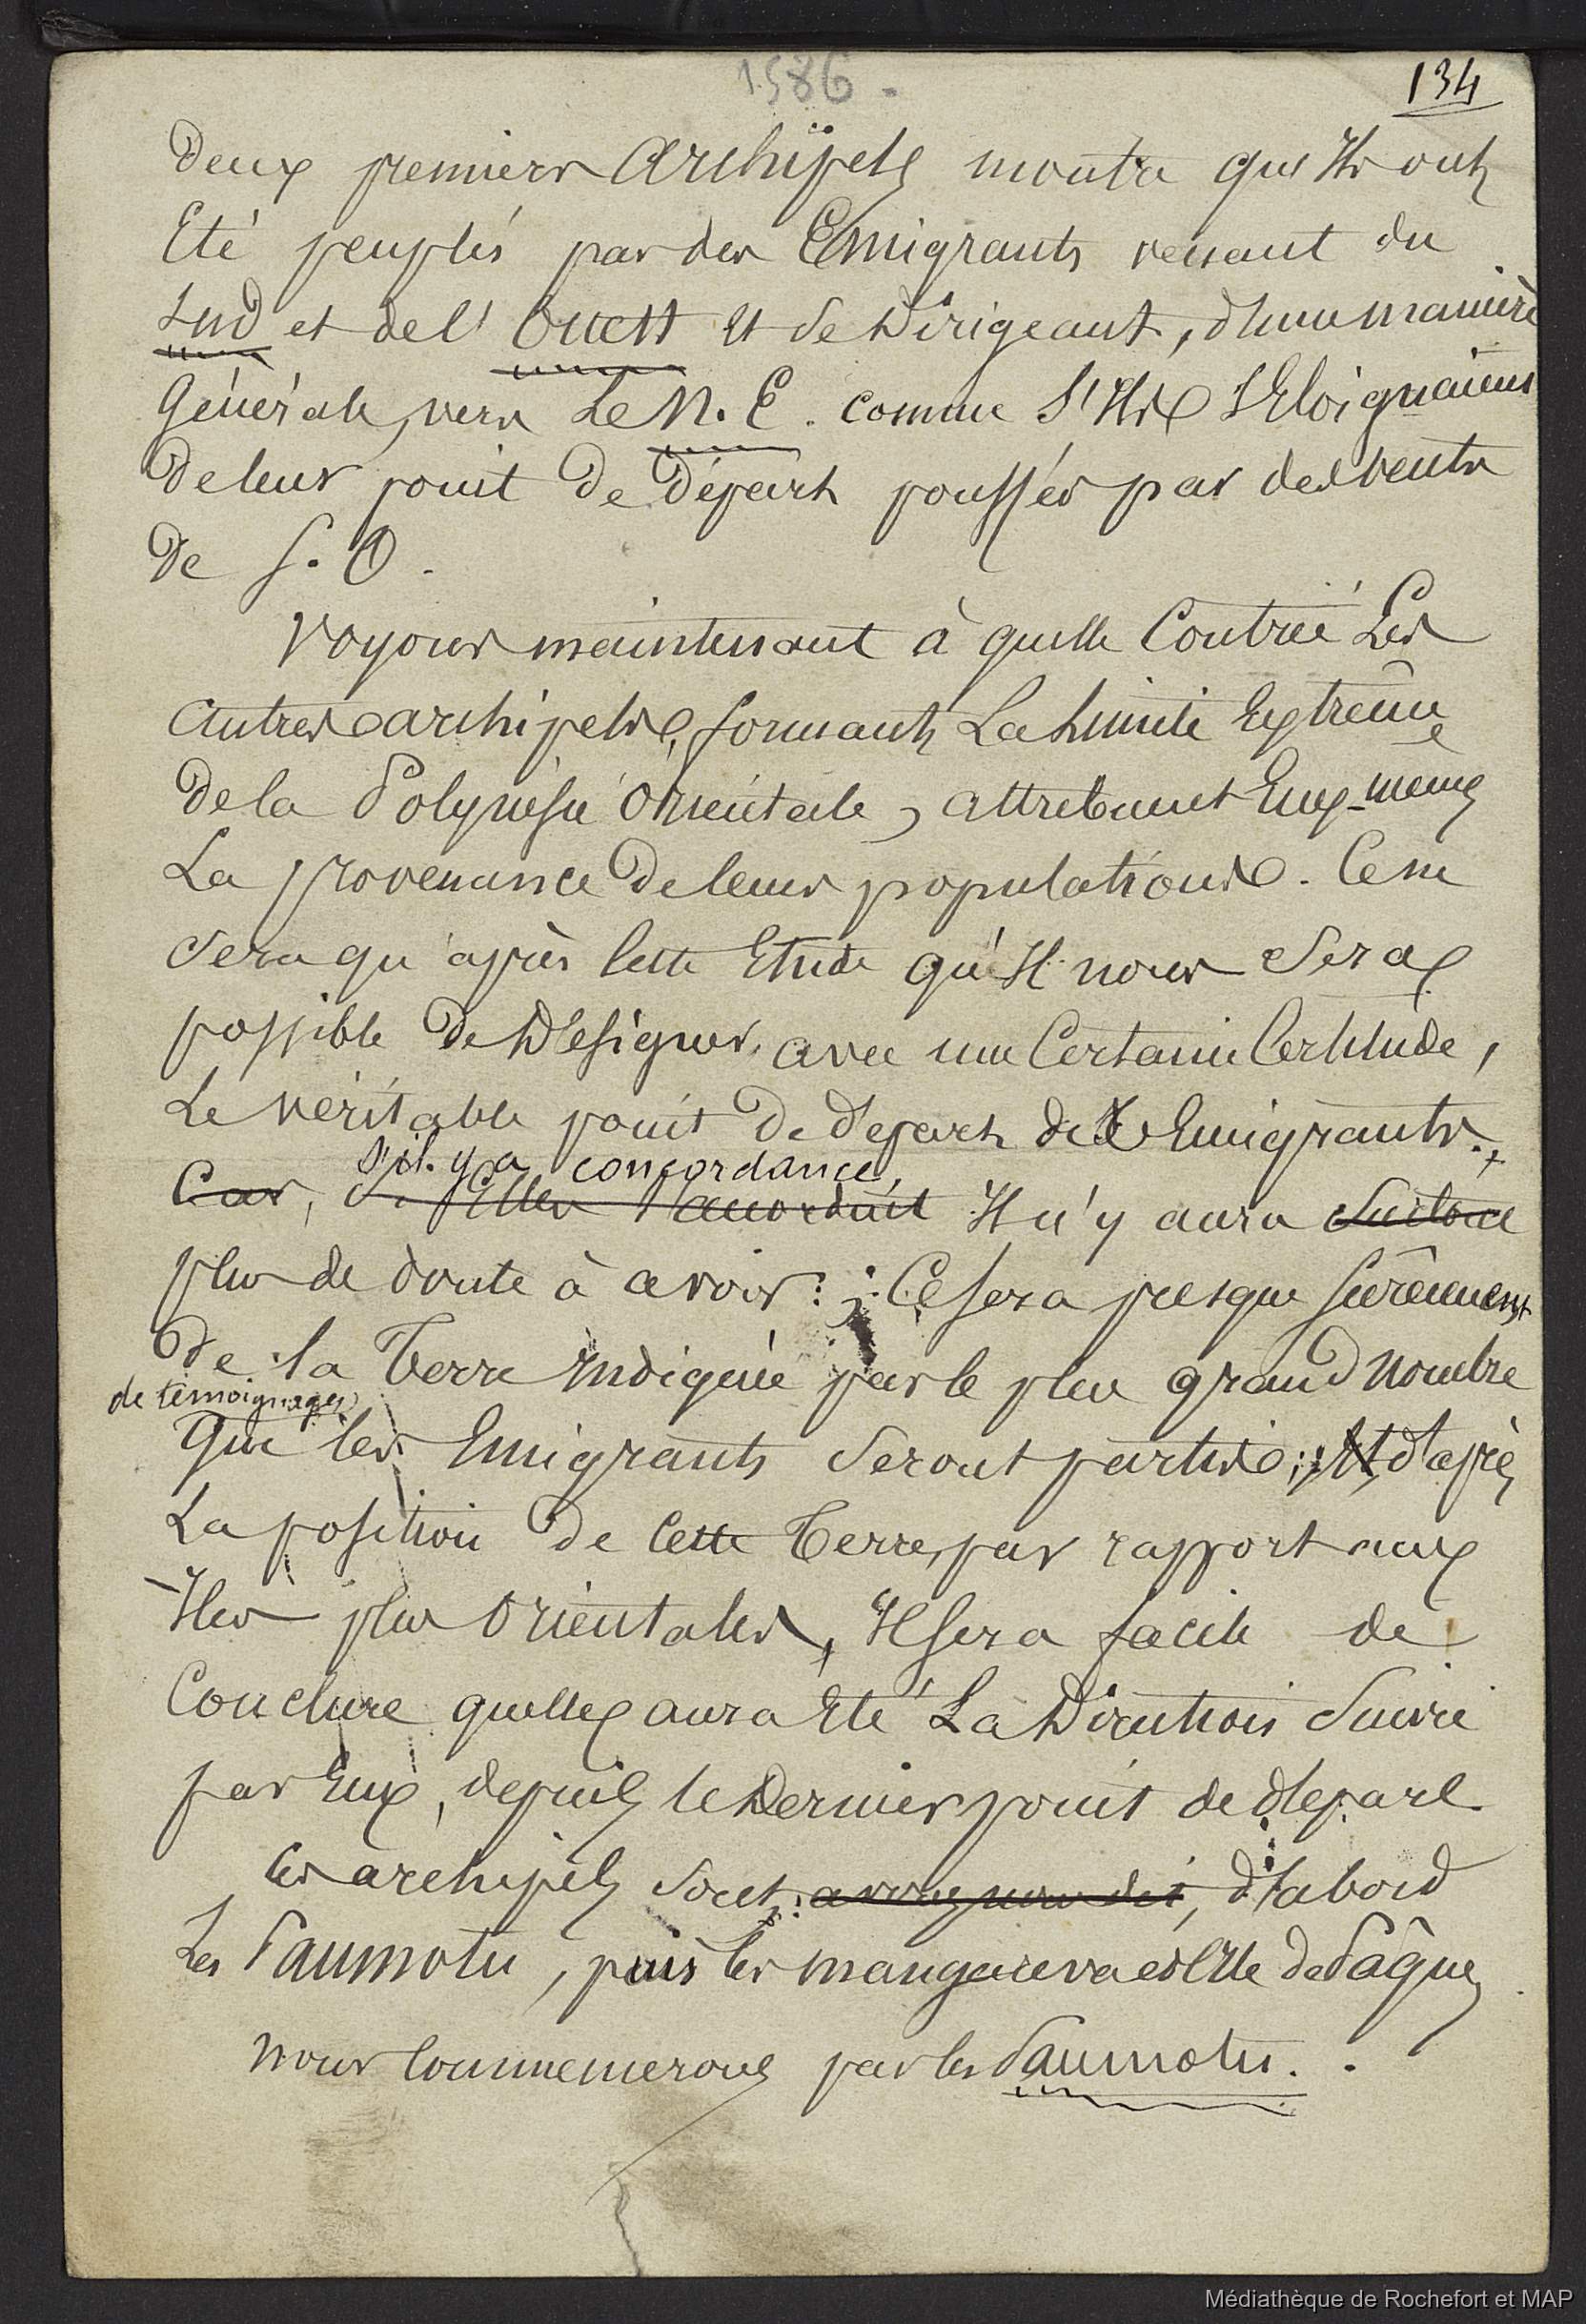 1586.
134
deux premiers Archipels montre qu'Ils ont
Eté peuplés par des Emigrants venant du
Sud et de l'Ouest et se Dirigeant, d'une manière
Générale, vers Le N. E. comme S'Ils S'Eloignaient
De leur point De Départ poussés par des vents
De S. O.
Voyons maintenant à quelle Contrée Les
Autres archipels, formant La Limite Extrême
De la Polynésie Orientale, attribuent Eux-mêmes
La provenance De leurs populations. Ce ne
Sera qu'après Cette Etude qu'Il nous Sera
possible De Désigner, avec une Certaine Certitude,
Le véritable point De départ des Emigrants.,
S'il y a concordance,
Car, Si Elles s'accordent Il n'y aura Surtout
plus de doute à avoir : ; Ce sera presque sûrement
De la Terre Indiquée par le plus grand Nombre
de témoignages
Que les Emigrants Seront partis ; Et, d'après
La position De Cette Terre, par rapport aux
Iles plus Orientales, Il sera facile de
Conclure quelle aura Eté La Direction Suivie
par Eux, depuis le Dernier point de départ
Ces archipels sont, avons nous dit, d'abord
Les Paumotu, puis les mangareva et l'Ile de Pâques
Nous Commencerons par les Paumotu.
Médiathèque de Rochefort et MAP